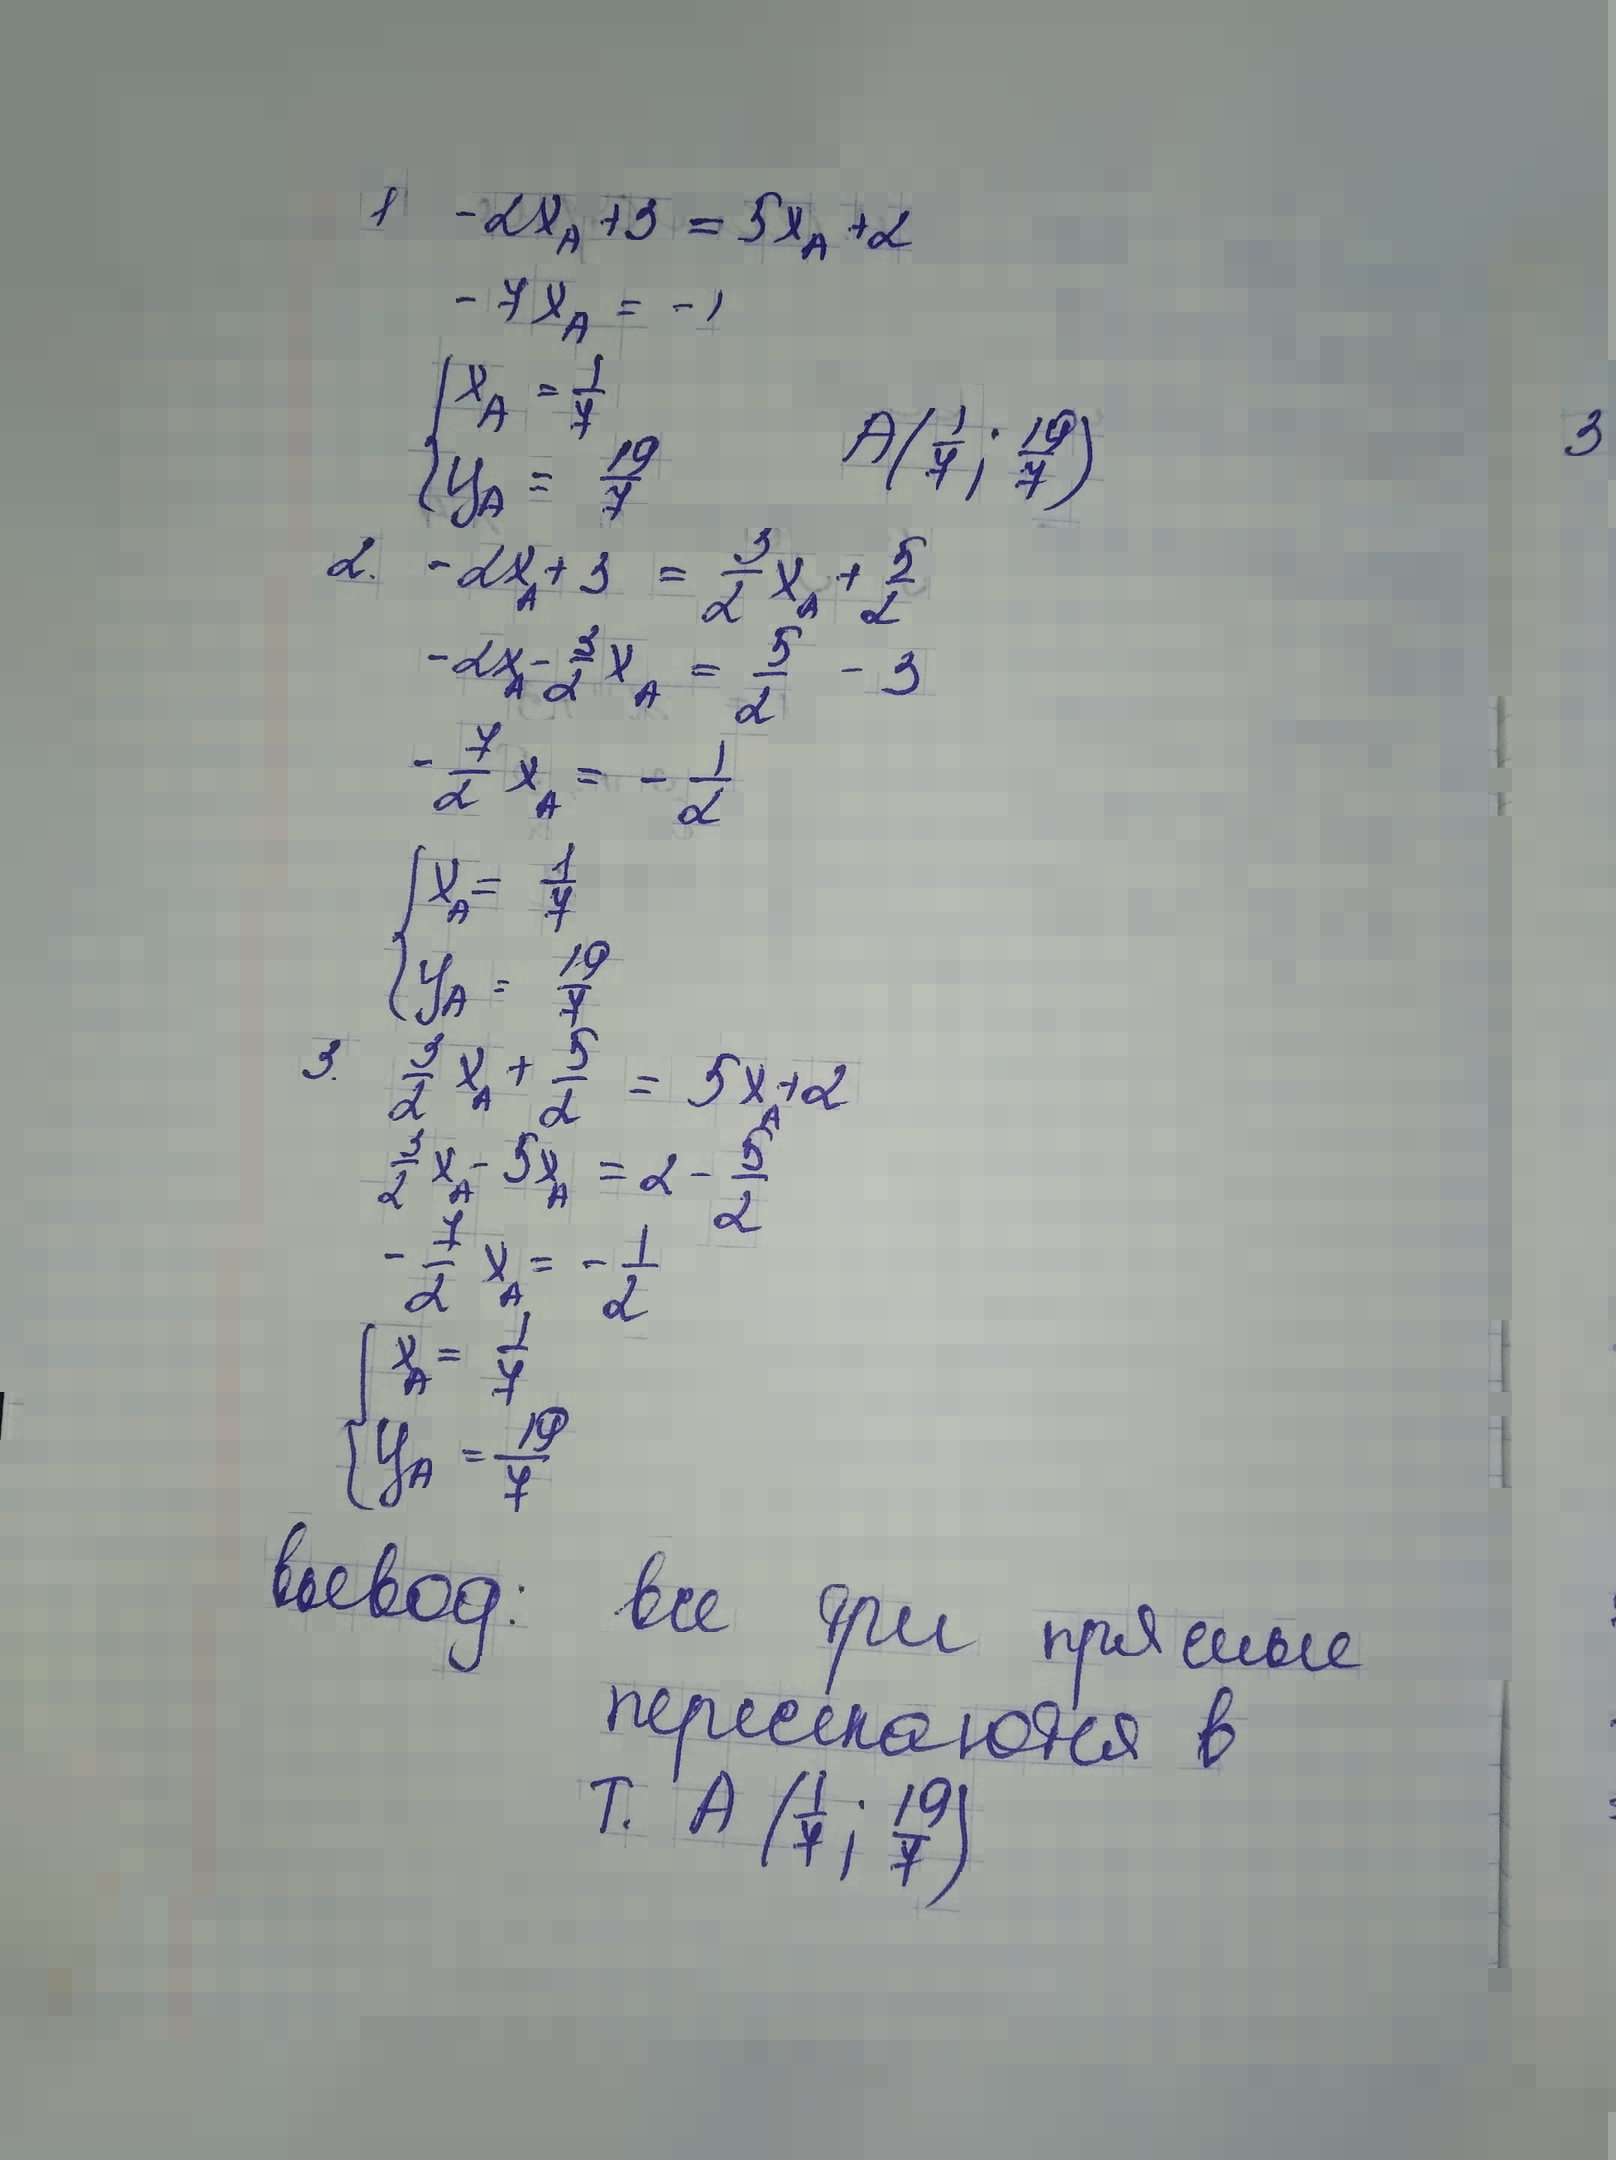 1 -2x_A + 3 = 5x_A + 2
-7x_A = -1
{ x_A = 1/7
y_A = 19/7 A(1/7; 19/7)
3
2. -2x_A + 3 = 3/2 x_A + 5/2
-2x_A - 3/2 x_A = 5/2 - 3
-7/2 x_A = -1/2
{ x_A = 1/7
y_A = 19/7
3. 3/2 x_A + 5/2 = 5x_A + 2
3/2 x_A - 5x_A = 2 - 5/2
-7/2 x_A = -1/2
{ x_A = 1/7
y_A = 19/7
вывод: все три прямые
пересекаются в
т. A (1/7; 19/7)